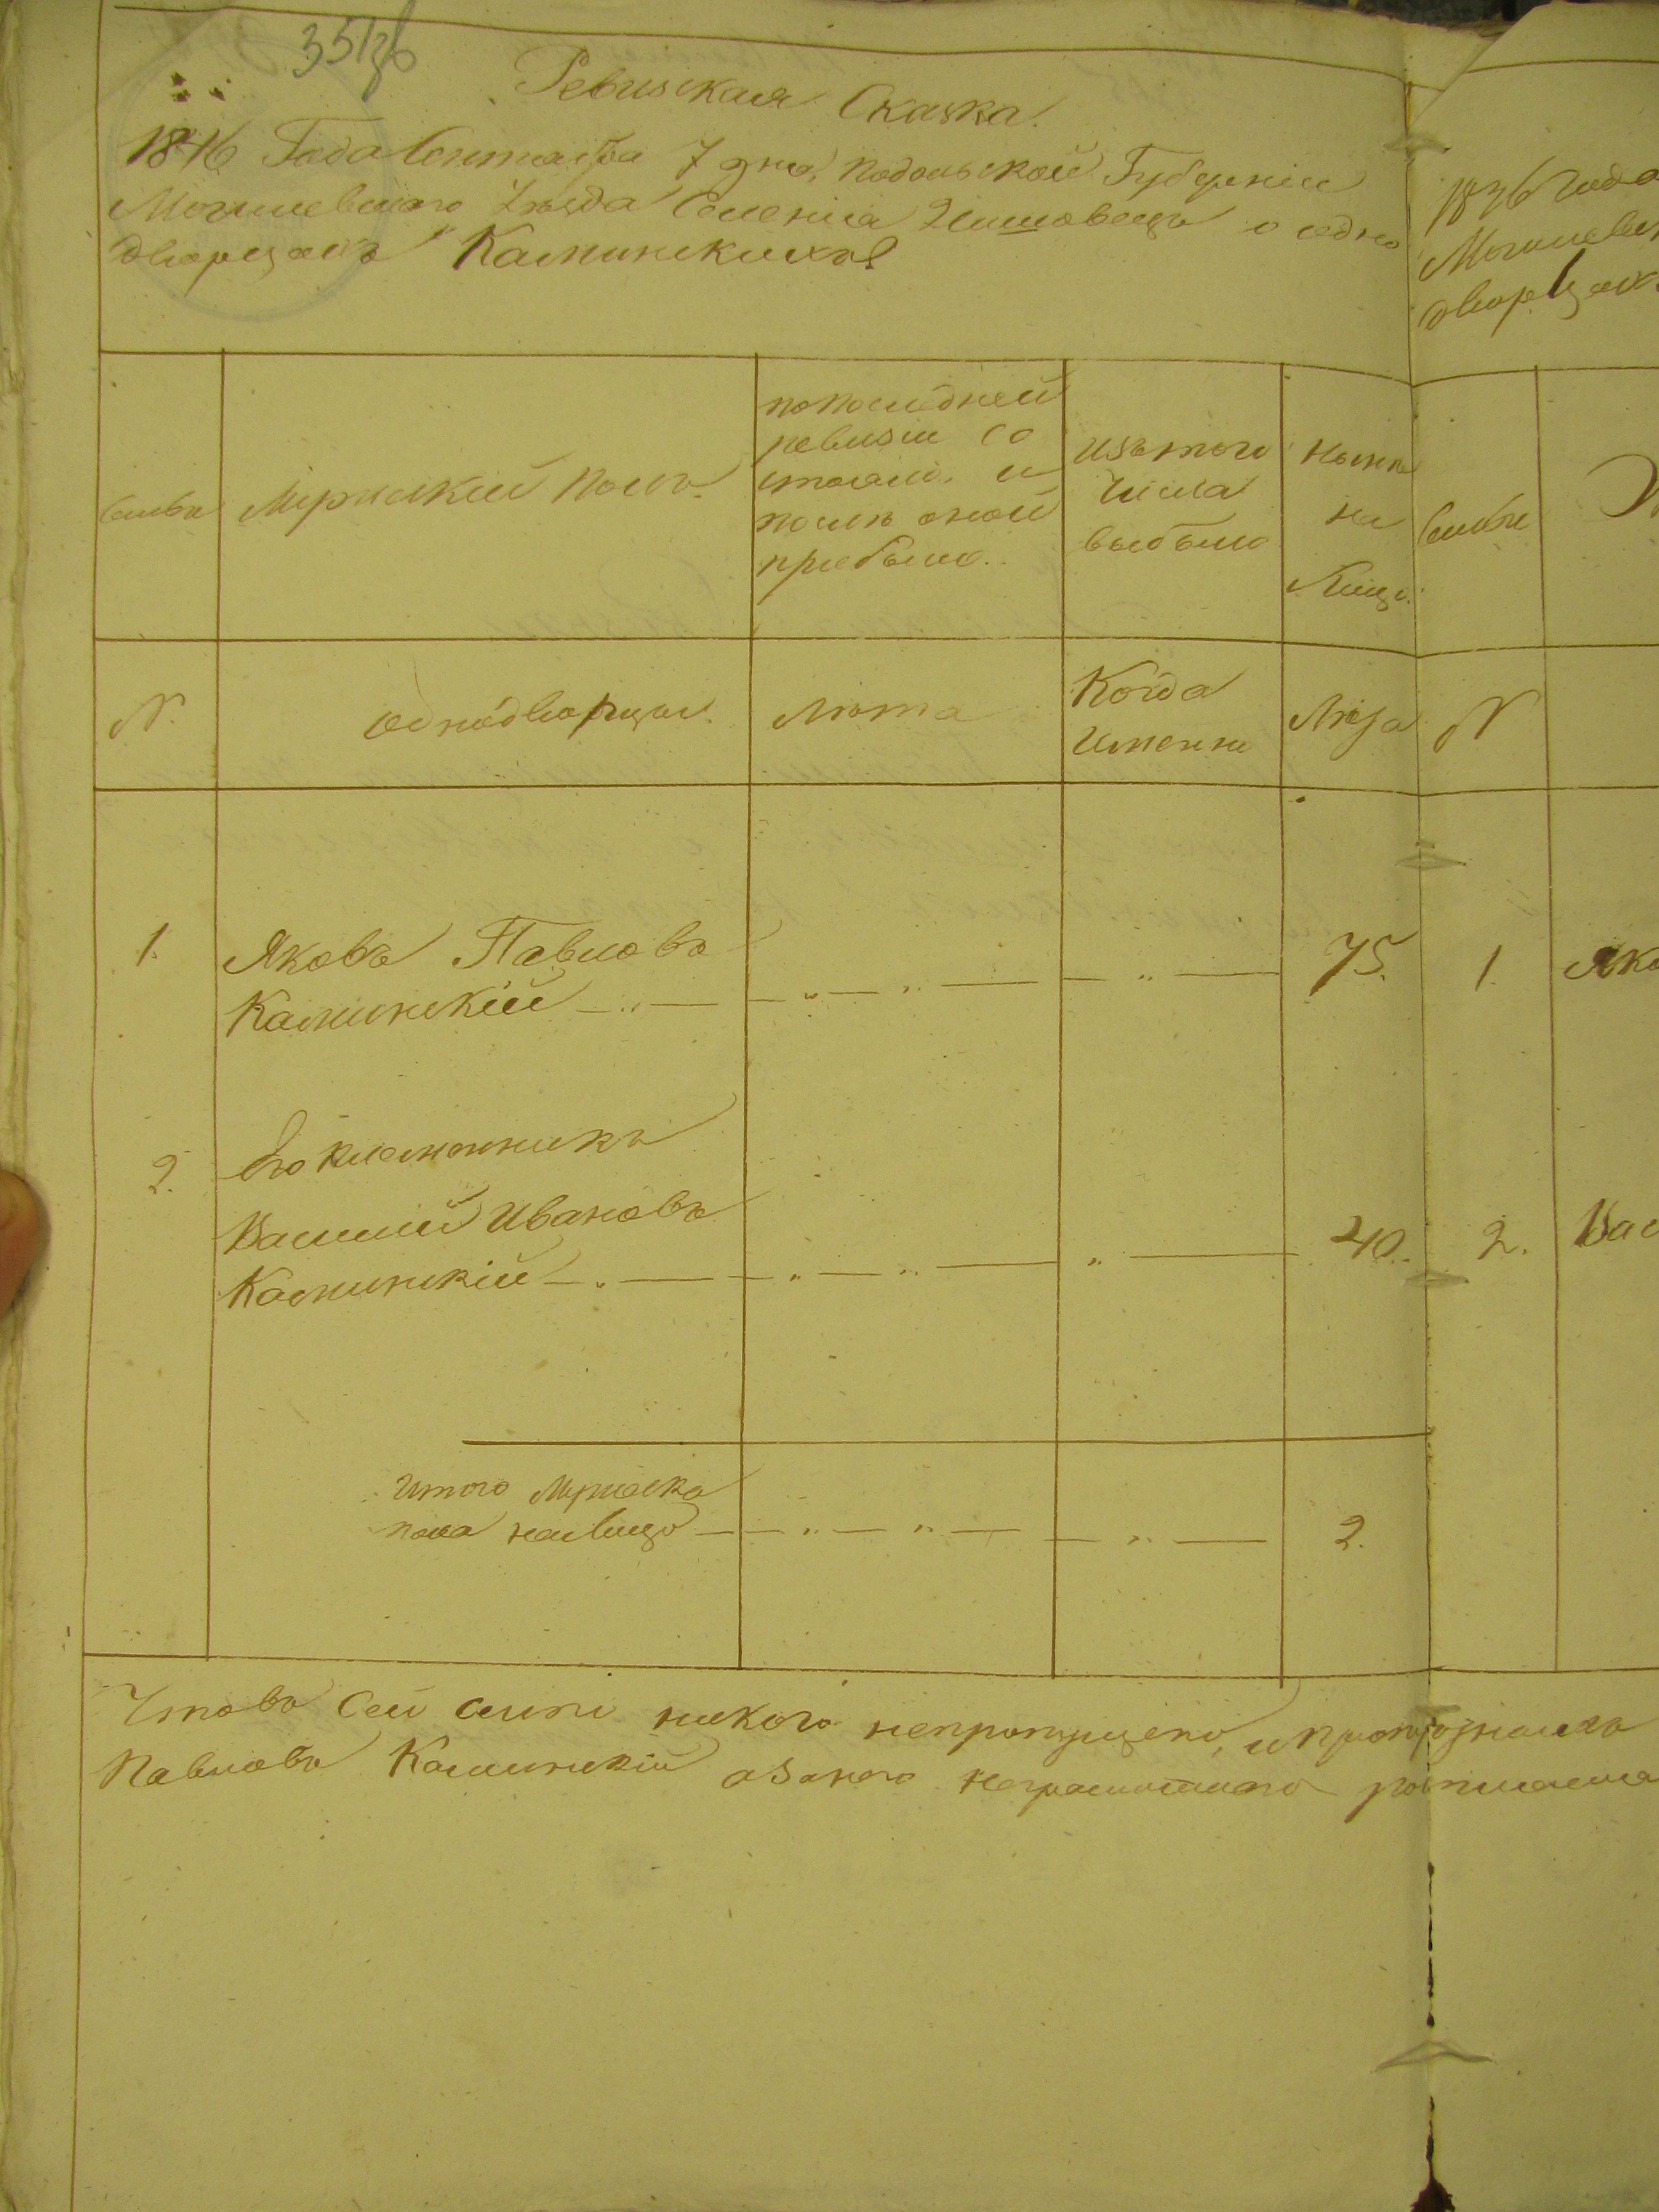 351 36
Ревизская Сказка.
1846 Года Сентября 7 дня, Подольской Губернии
Могилевскаго Уезда Селения о одно
дворцахъ Каминскихъ
Семьи
Мужеский Полъ.
по последней
ревизии со
стояло и
после оной
прибыло.
изъ того
числа
выбыло
Ныне
на
Лицо.
N.
Однодворцы.
Лета
Когда
Именно
Лета
1.
Яковъ Павловъ
Каминский
75.
2.
Его племянникъ
Василий Ивановъ
Каминский
40.
Итого Мужеска
пола налицо
2.
Что въ сей никого непропущено,
Павловъ Каминский а за него неграмотнаго росписался
1836 Года
Могилев
дворцахъ
Семьи
N
1.
Яко
2.
Вас